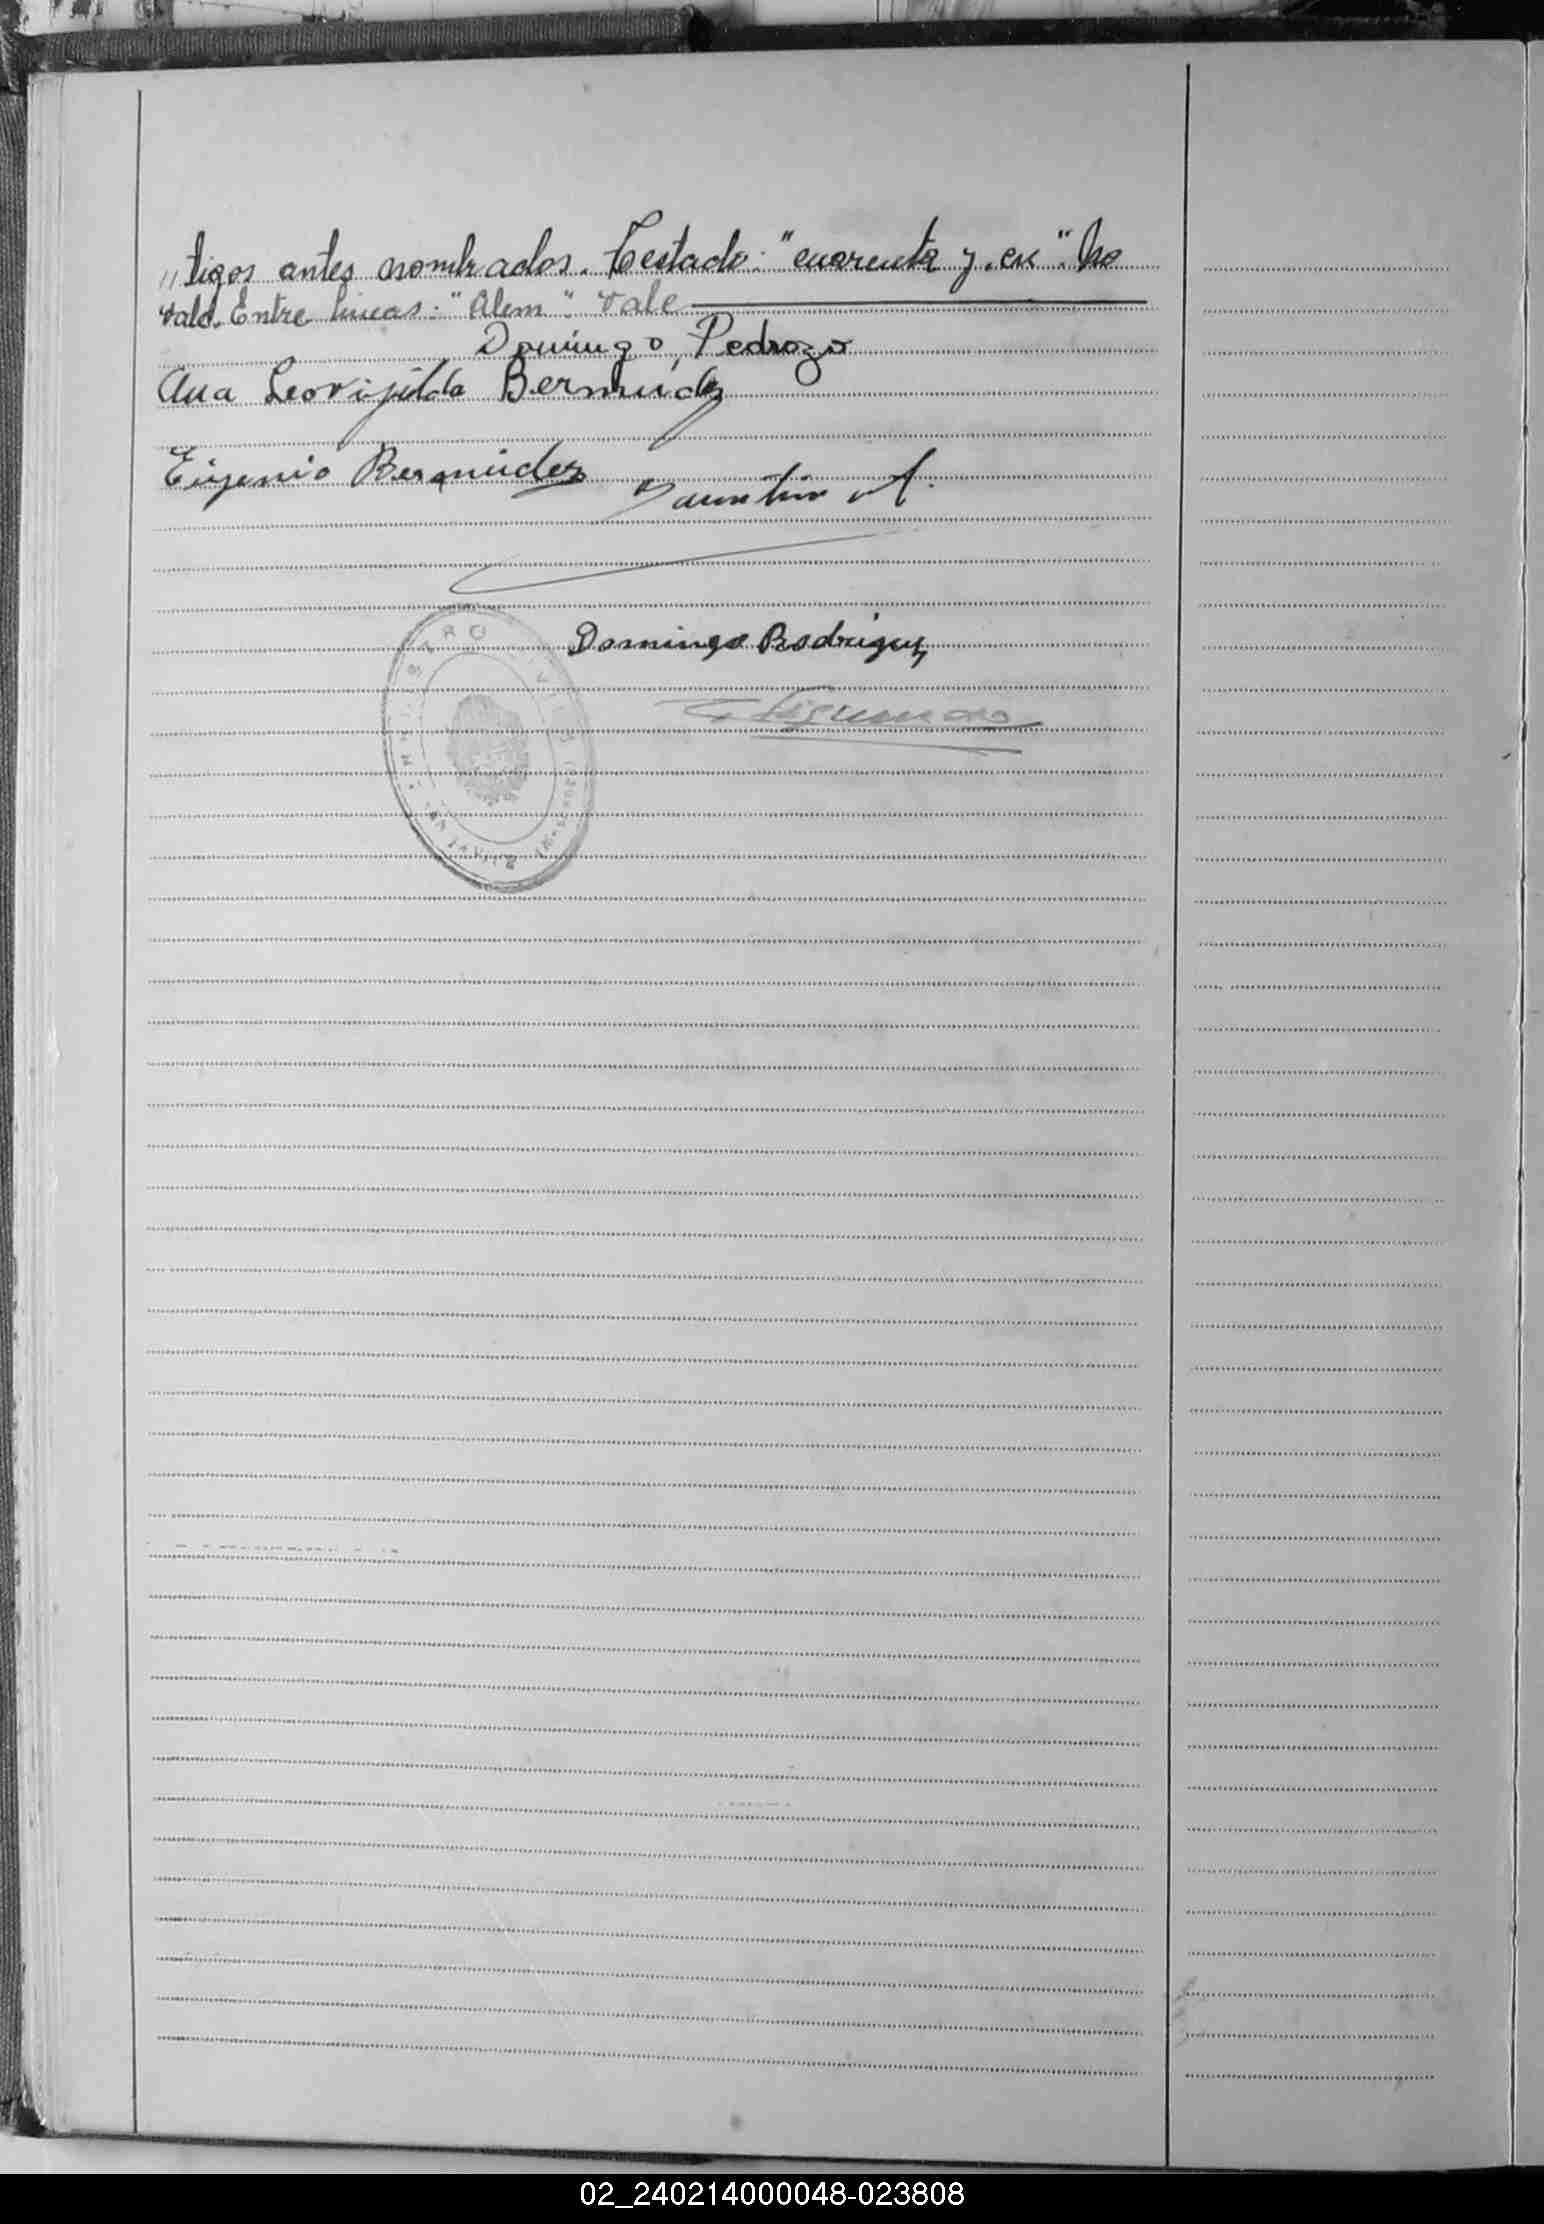 //tigos antes nombrados. Testado: "cuarenta y. en". No
vale. Entre lineas: "Alem". Vale
Domingo Pedrozo
Ana Leovijilda Bermúdez
Eugenio Bermúdez
Domingo Rodriguez
REGISTRO CIVIL
02_240214000048-023808